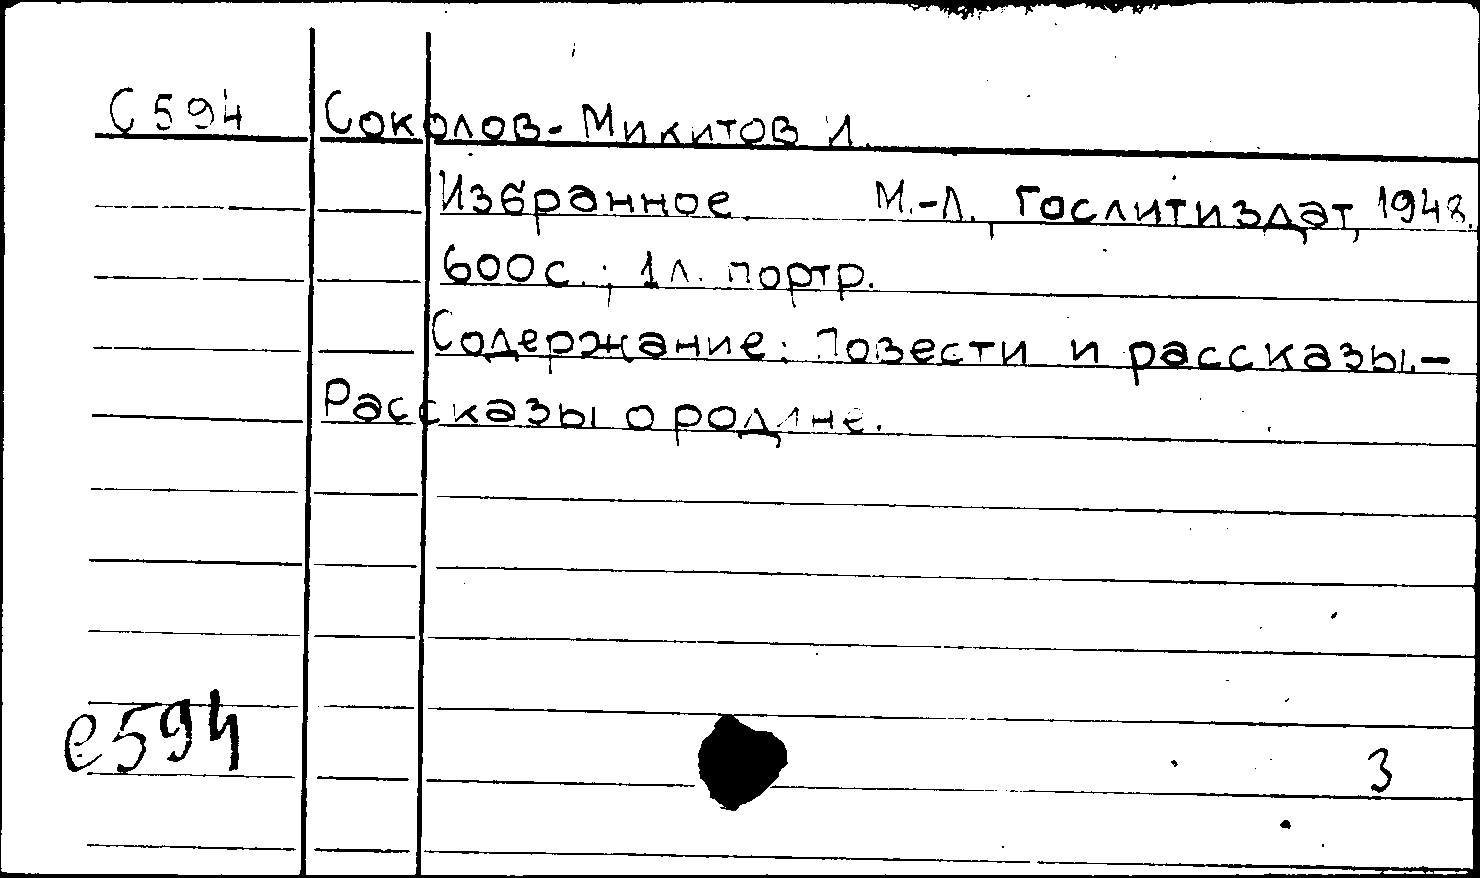 С594 Соколов-Микитов И.
Избранное. М.-Л., Гослитиздат, 1948.
600с.; 1л. портр.
Содержание: Повести и рассказы.-
Рассказы о родине.
С594
3